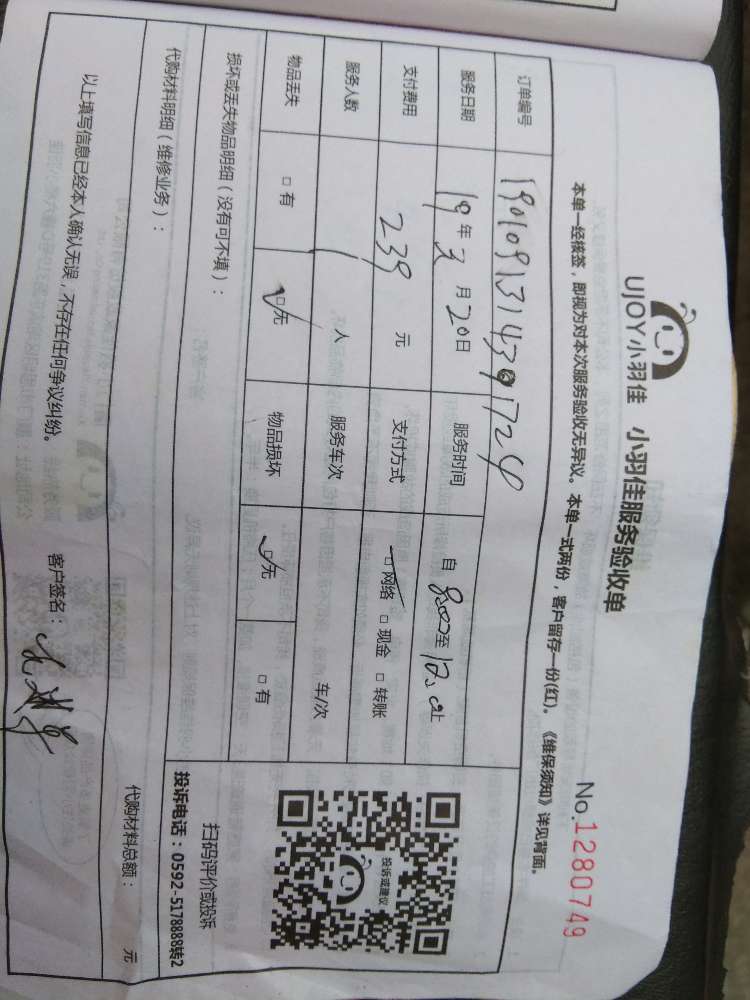 UJOY小羽佳 小羽佳服务验收单
No.1280749
本单一经核签，即视为对本次服务验收无异议。本单一式两份，客户留存一份(红)。《维保须知》详见背面。
订单编号
服务日期 19年 月20日 服务时间 自 8:00至 12:00止
支付费用 239 元 支付方式 □网络 □现金 □转账
服务人数 1 人 服务车次 车/次
物品丢失 □有 □无 物品损坏 □无 □有
损坏或丢失物品明细（没有可不填）：
投诉或建议
扫码评价或投诉
投诉电话：0592-5178888转2
代购材料明细（维修业务）： 代购材料总额： 元
以上填写信息已经本人确认无误，不存在任何争议纠纷。 客户签名：